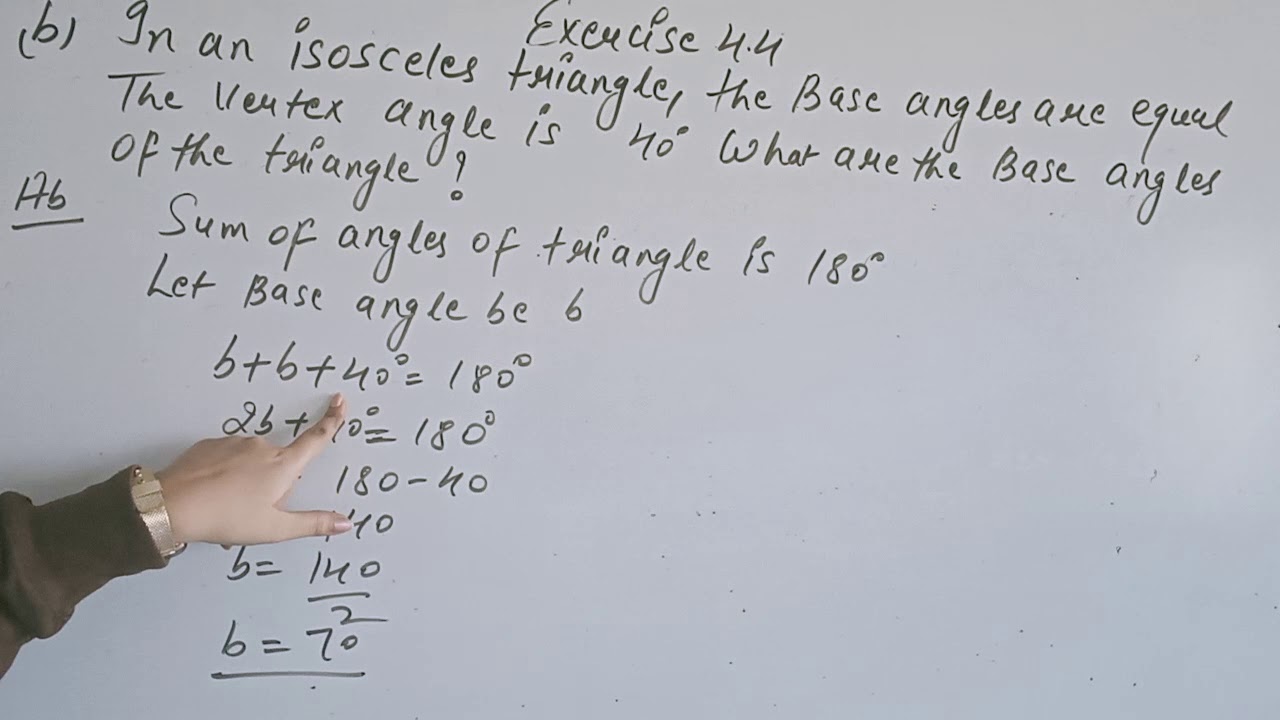 Exercise 4.4
(b) In an isosceles triangle, the Base angles are equal
The Vertex angle is 40° What are the Base angles
of the triangle?
Ab
Sum of angles of triangle is 180°
Let Base angle be b
b+b+40°= 180°
2b + 40°= 180°
180-40
140
b= 140
2
b = 70